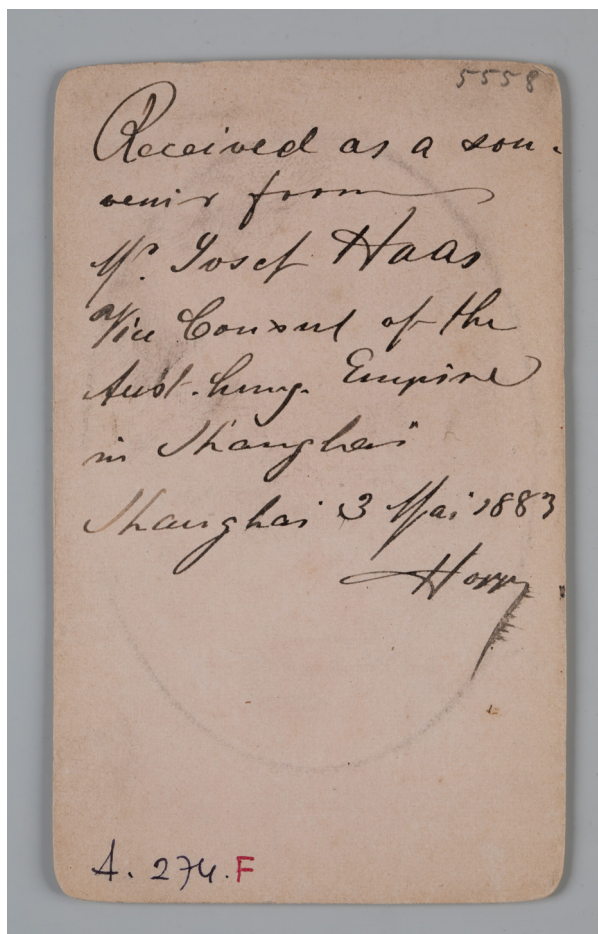 5558
Received as a sou-
venir from
Mr. Josef Haas
Vice Consul of the
Aust. hung. Empire
in Shanghai
Shanghai 3 Mai 1883
Hopp
A. 274.F